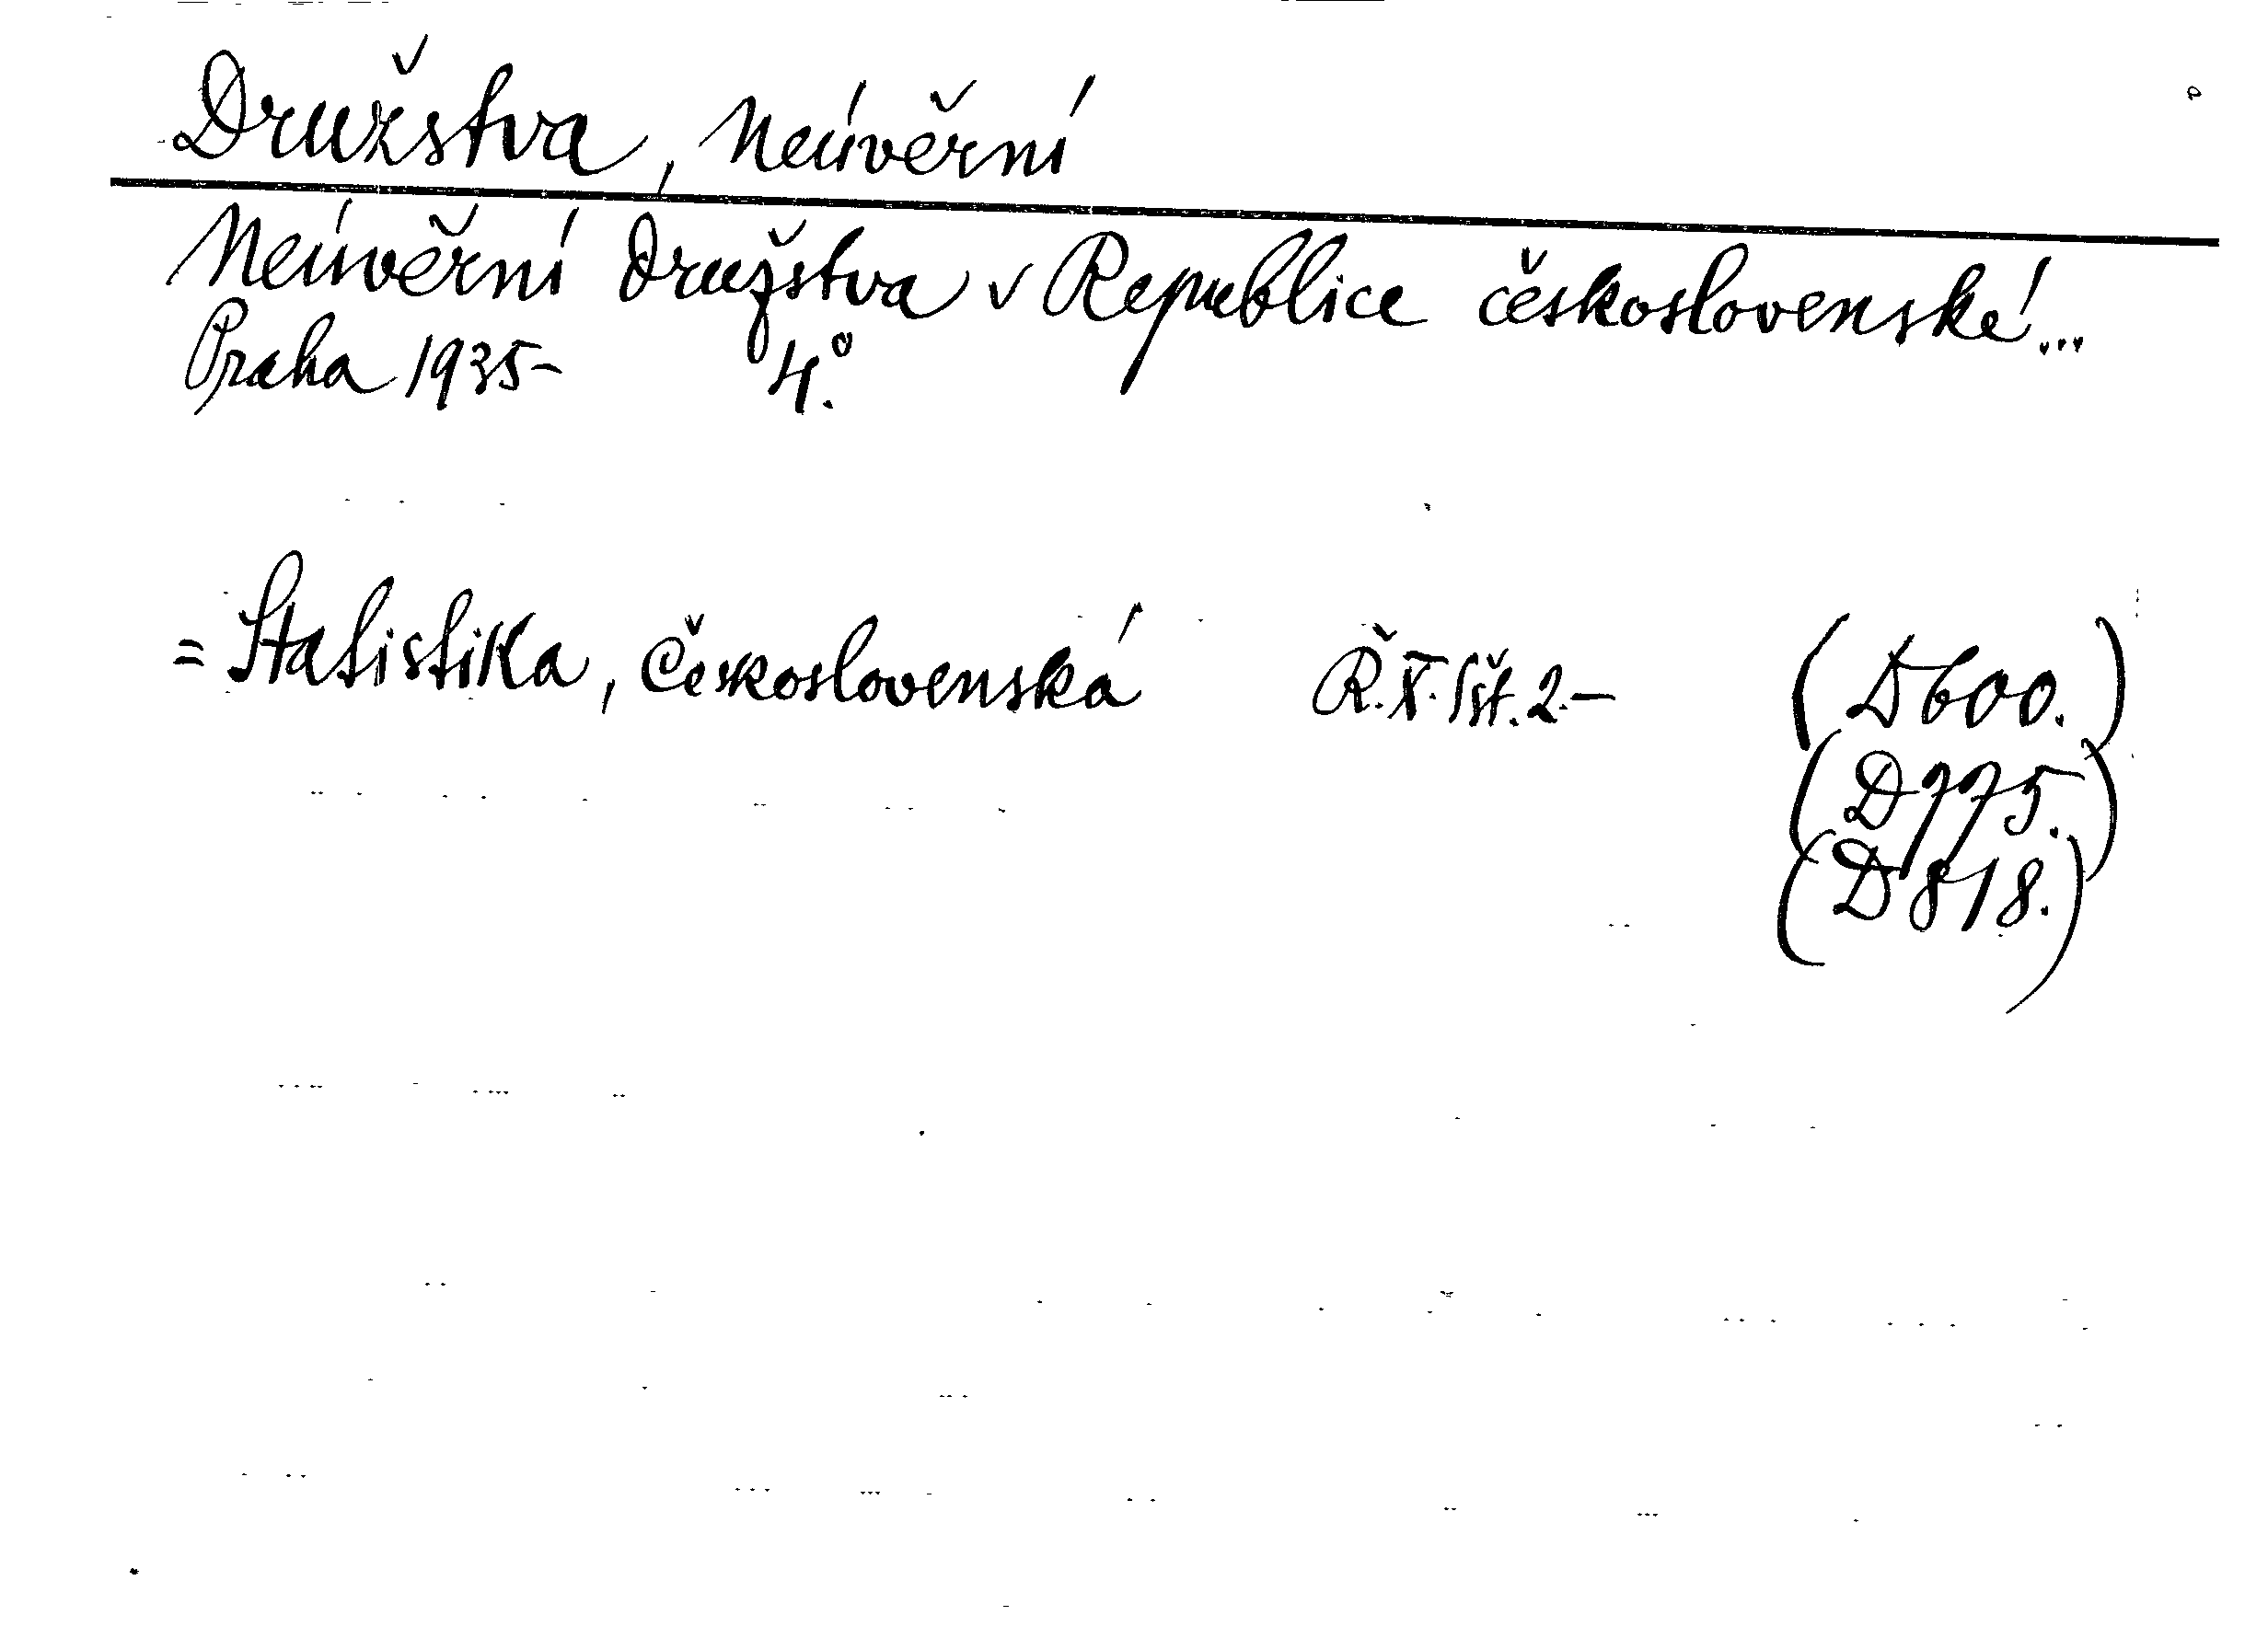 Družstva, neúvěrní
Neúvěrní družstva v Republice československé...
Praha 1935- 4.°
= Statistika, Československá Ř.X. sšt. 2.- (D600.)
(D775.)
(D818.)